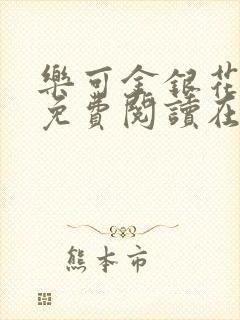 樂可金銀花
免費閱讀在
熊本市